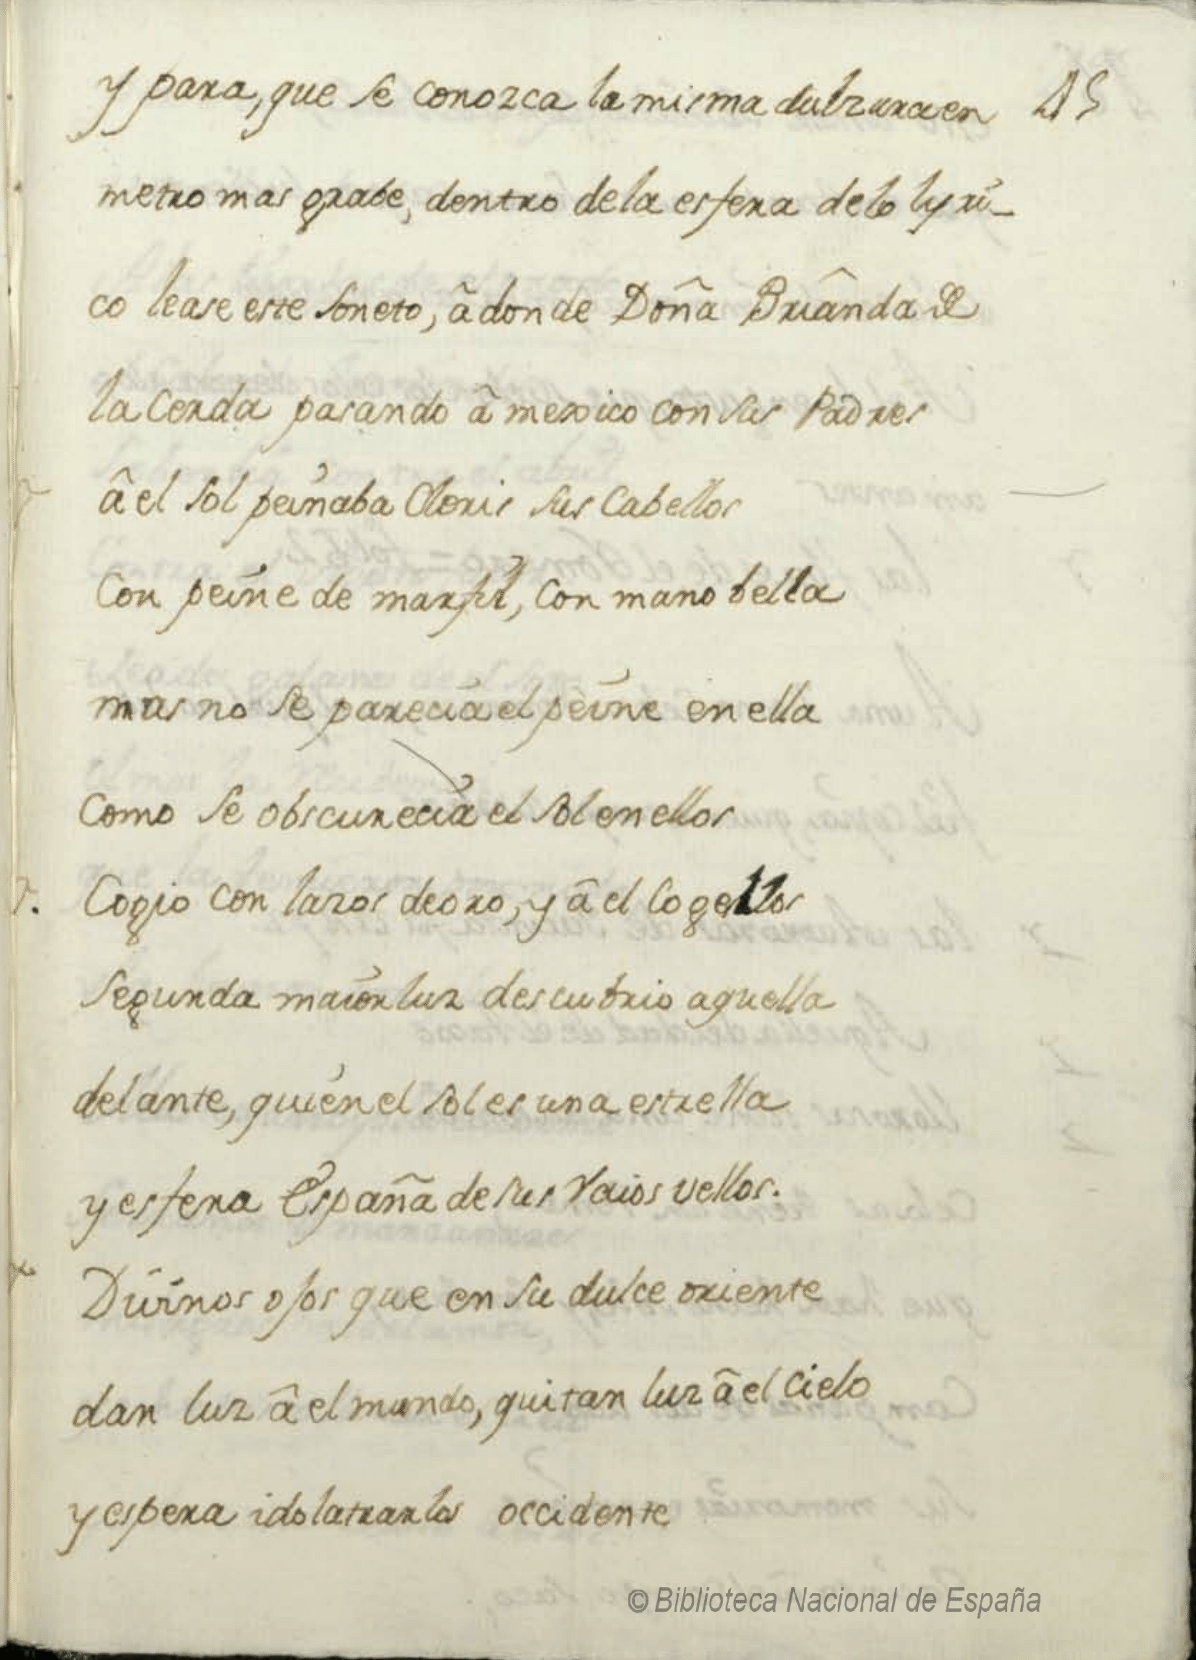 y para, que se conozca la misma dulzura en 45
metro mas grabe, dentro de la esfera de lo lyri-
co lease este soneto, â donde Doña Briânda de
la Cerda pasando â mexico con sus Padres
â el sol peinaba Cloris sus Cabellos
Con peine de marfil, Con mano bella
mas no se parecia el peine en ella
Como se obscurecia el sol en ellos
Cogio Con lazos de oro, y â el Cogellos
segunda maior luz descubrio aquella
delante, quien el sol es una estrella
y esfera España de sus Raios vellos.
Divinos ojos que en su dulce oriente
dan luz â el mundo, quitan luz â el Cielo
y espera idolatrarlos occidente
© Biblioteca Nacional de España